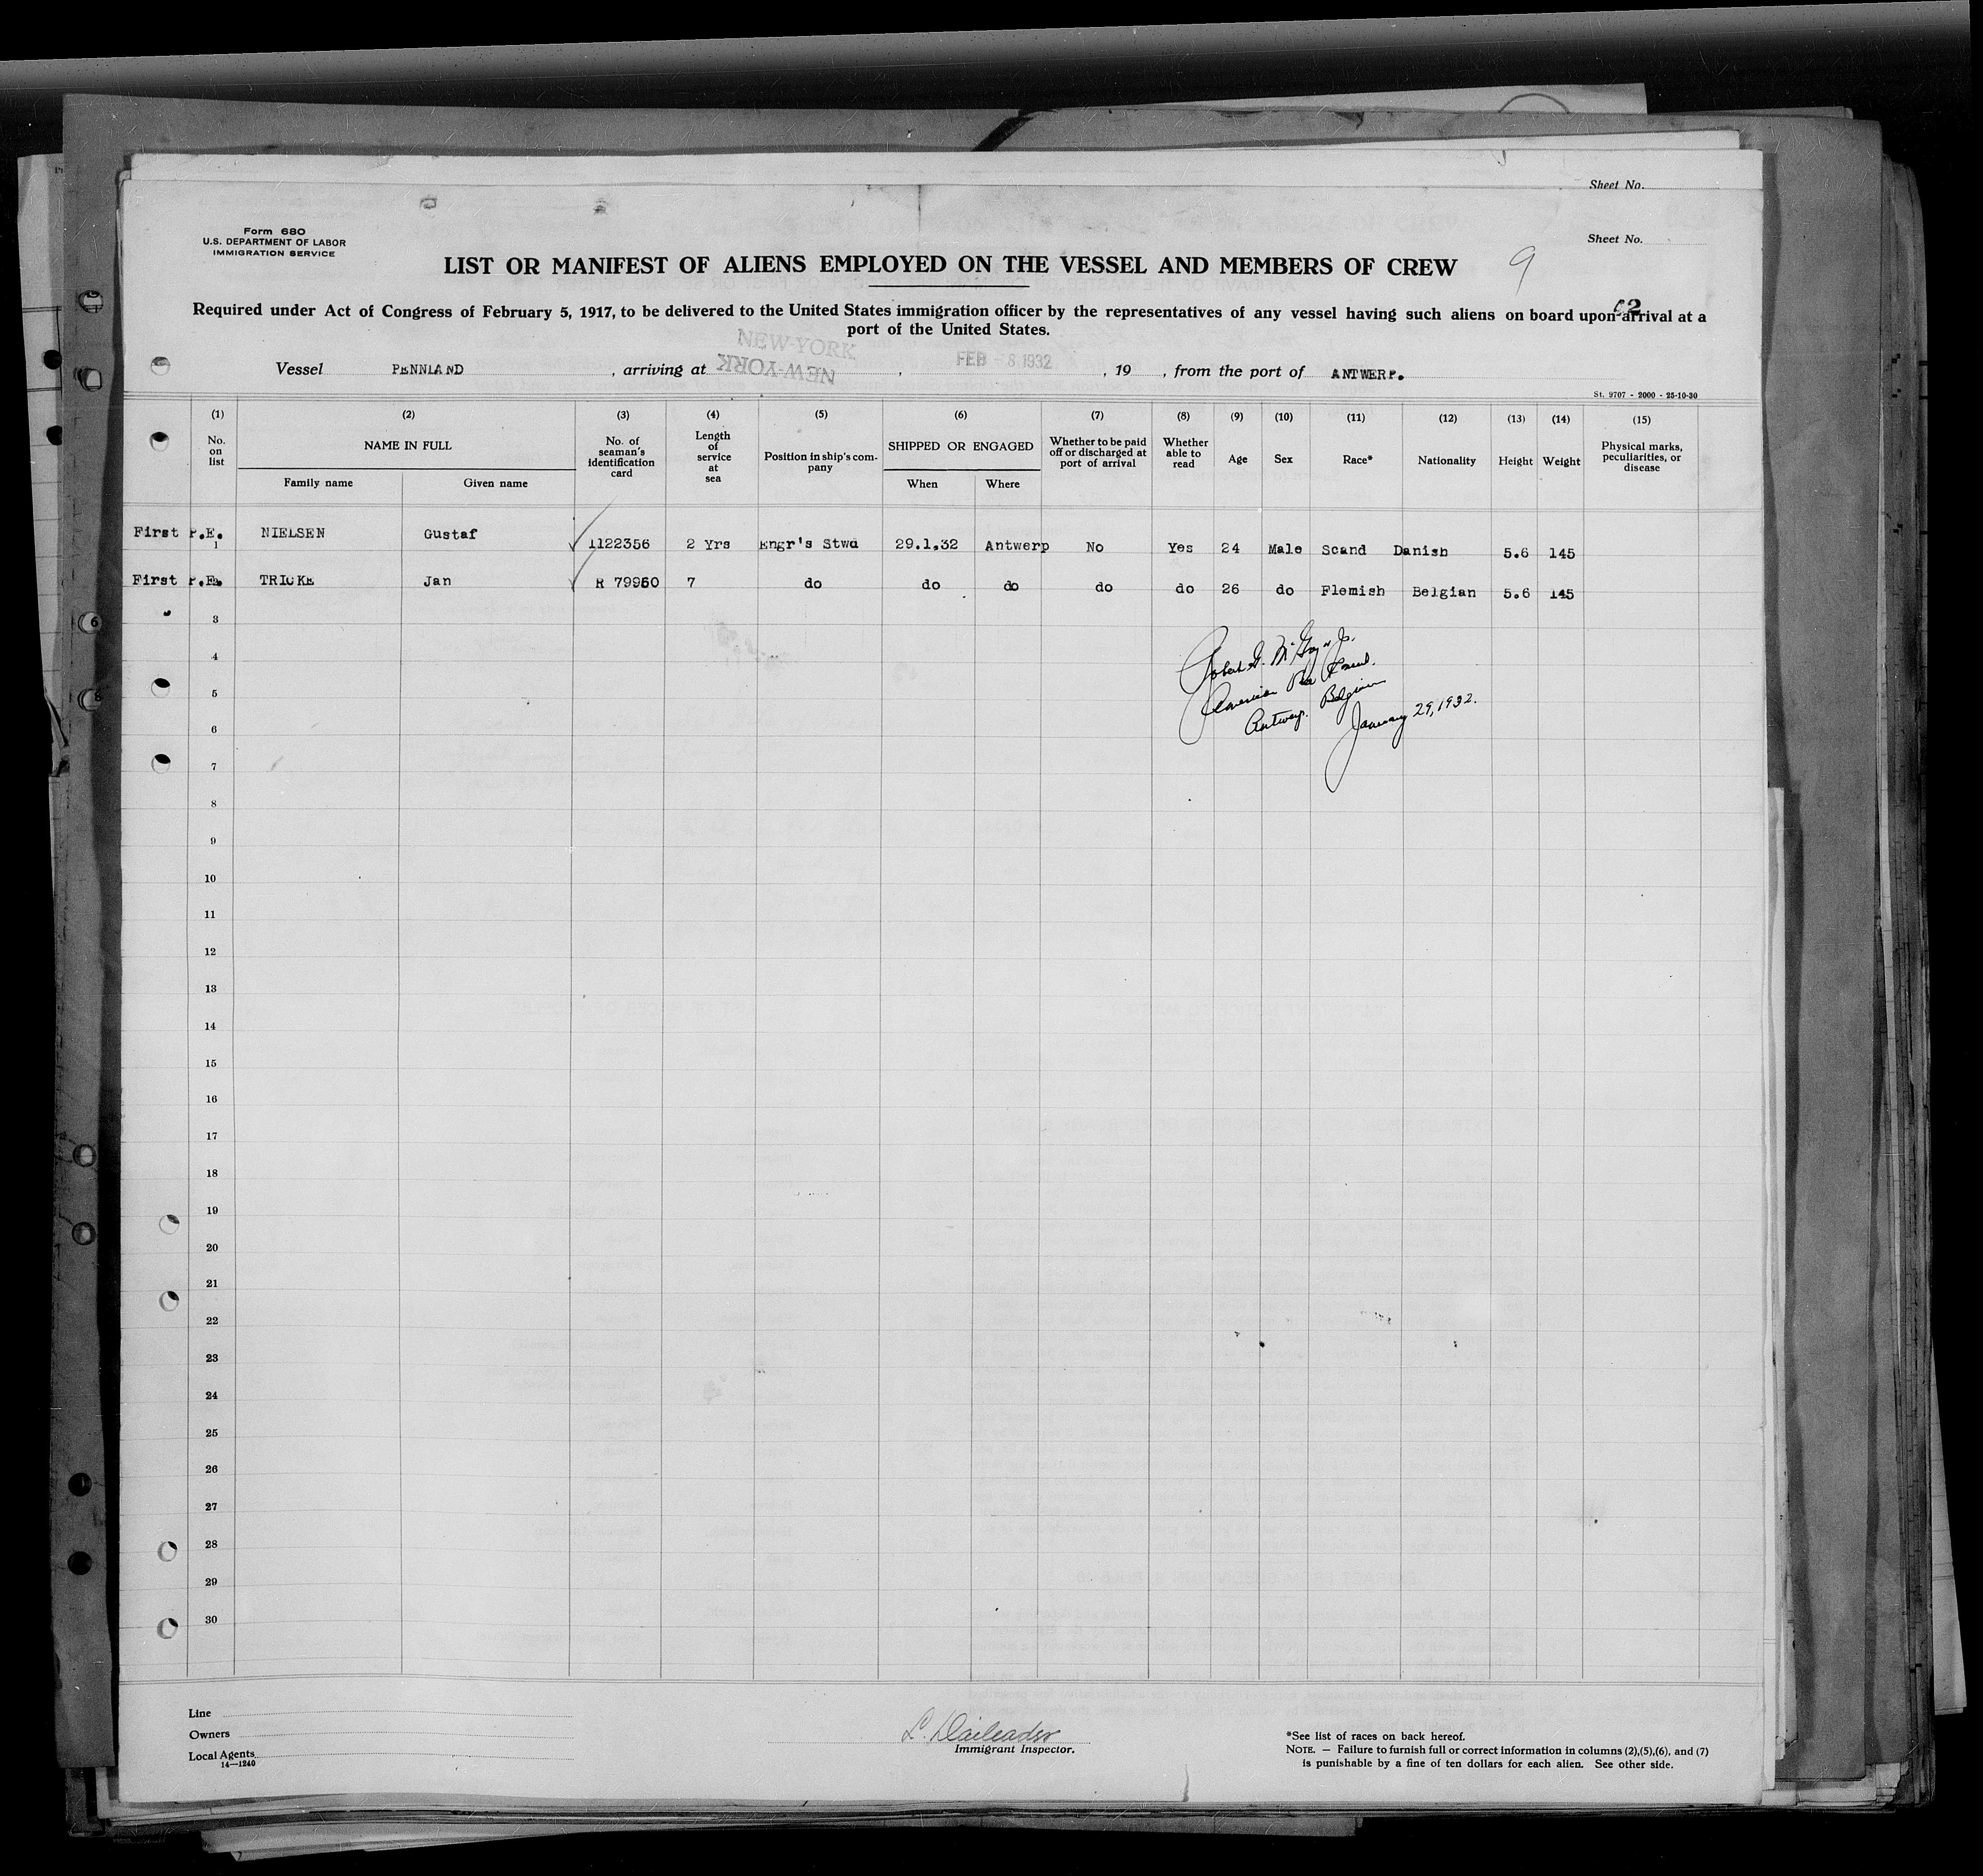 Sheet No.
Sheet No.
Form 680
U.S. DEPARTMENT OF LABOR
IMMIGRATION SERVICE
LIST OR MANIFEST OF ALIENS EMPLOYED ON THE VESSEL AND MEMBERS OF CREW
9
Required under Act of Congress of February 5, 1917, to be delivered to the United States immigration officer by the representatives of any vessel having such aliens on board upon arrival at a
port of the United States.
NEW-YORK
Vessel PENNLAND, arriving at NEW-YORK, FEB - 8 1932, 19 , from the port of ANTWERP.
St. 9707 - 2000 - 25-10-30
(1) (2) (3) (4) (5) (6) (7) (8) (9) (10) (11) (12) (13) (14) (15)
No. on list
NAME IN FULL
Family name
Given name
No. of seaman's identification card
Length of service at sea
Position in ship's company
SHIPPED OR ENGAGED
When
Where
Whether to be paid off or discharged at port of arrival
Whether able to read
Age
Sex
Race*
Nationality
Height
Weight
Physical marks, peculiarities, or disease
First P.E. 1 NIELSEN Gustaf 1122356 2 Yrs Engr's Stwd 29.1.32 Antwerp No Yes 24 Male Scand Danish 5.6 145
First P.E. TRICKE Jan R 79960 7 do do do do do 26 do Flemish Belgian 5.6 145
3
4
5
6
7
8
9
10
11
12
13
14
15
16
17
18
19
20
21
22
23
24
25
26
27
28
29
30
American Vice Consul.
Antwerp. Belgium
January 29, 1932.
Line
Owners
Local Agents
14—1240
Immigrant Inspector.
*See list of races on back hereof.
NOTE. — Failure to furnish full or correct information in columns (2),(5),(6), and (7)
is punishable by a fine of ten dollars for each alien. See other side.